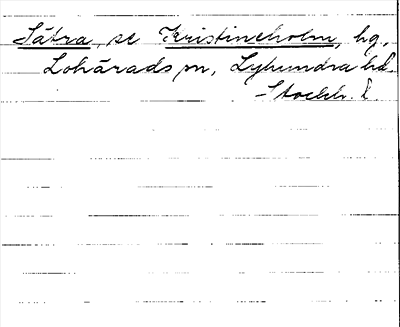 Sätra, se Kristineholm, hg,
Lohärads sn, Lyhundra hd.
Stockh. l